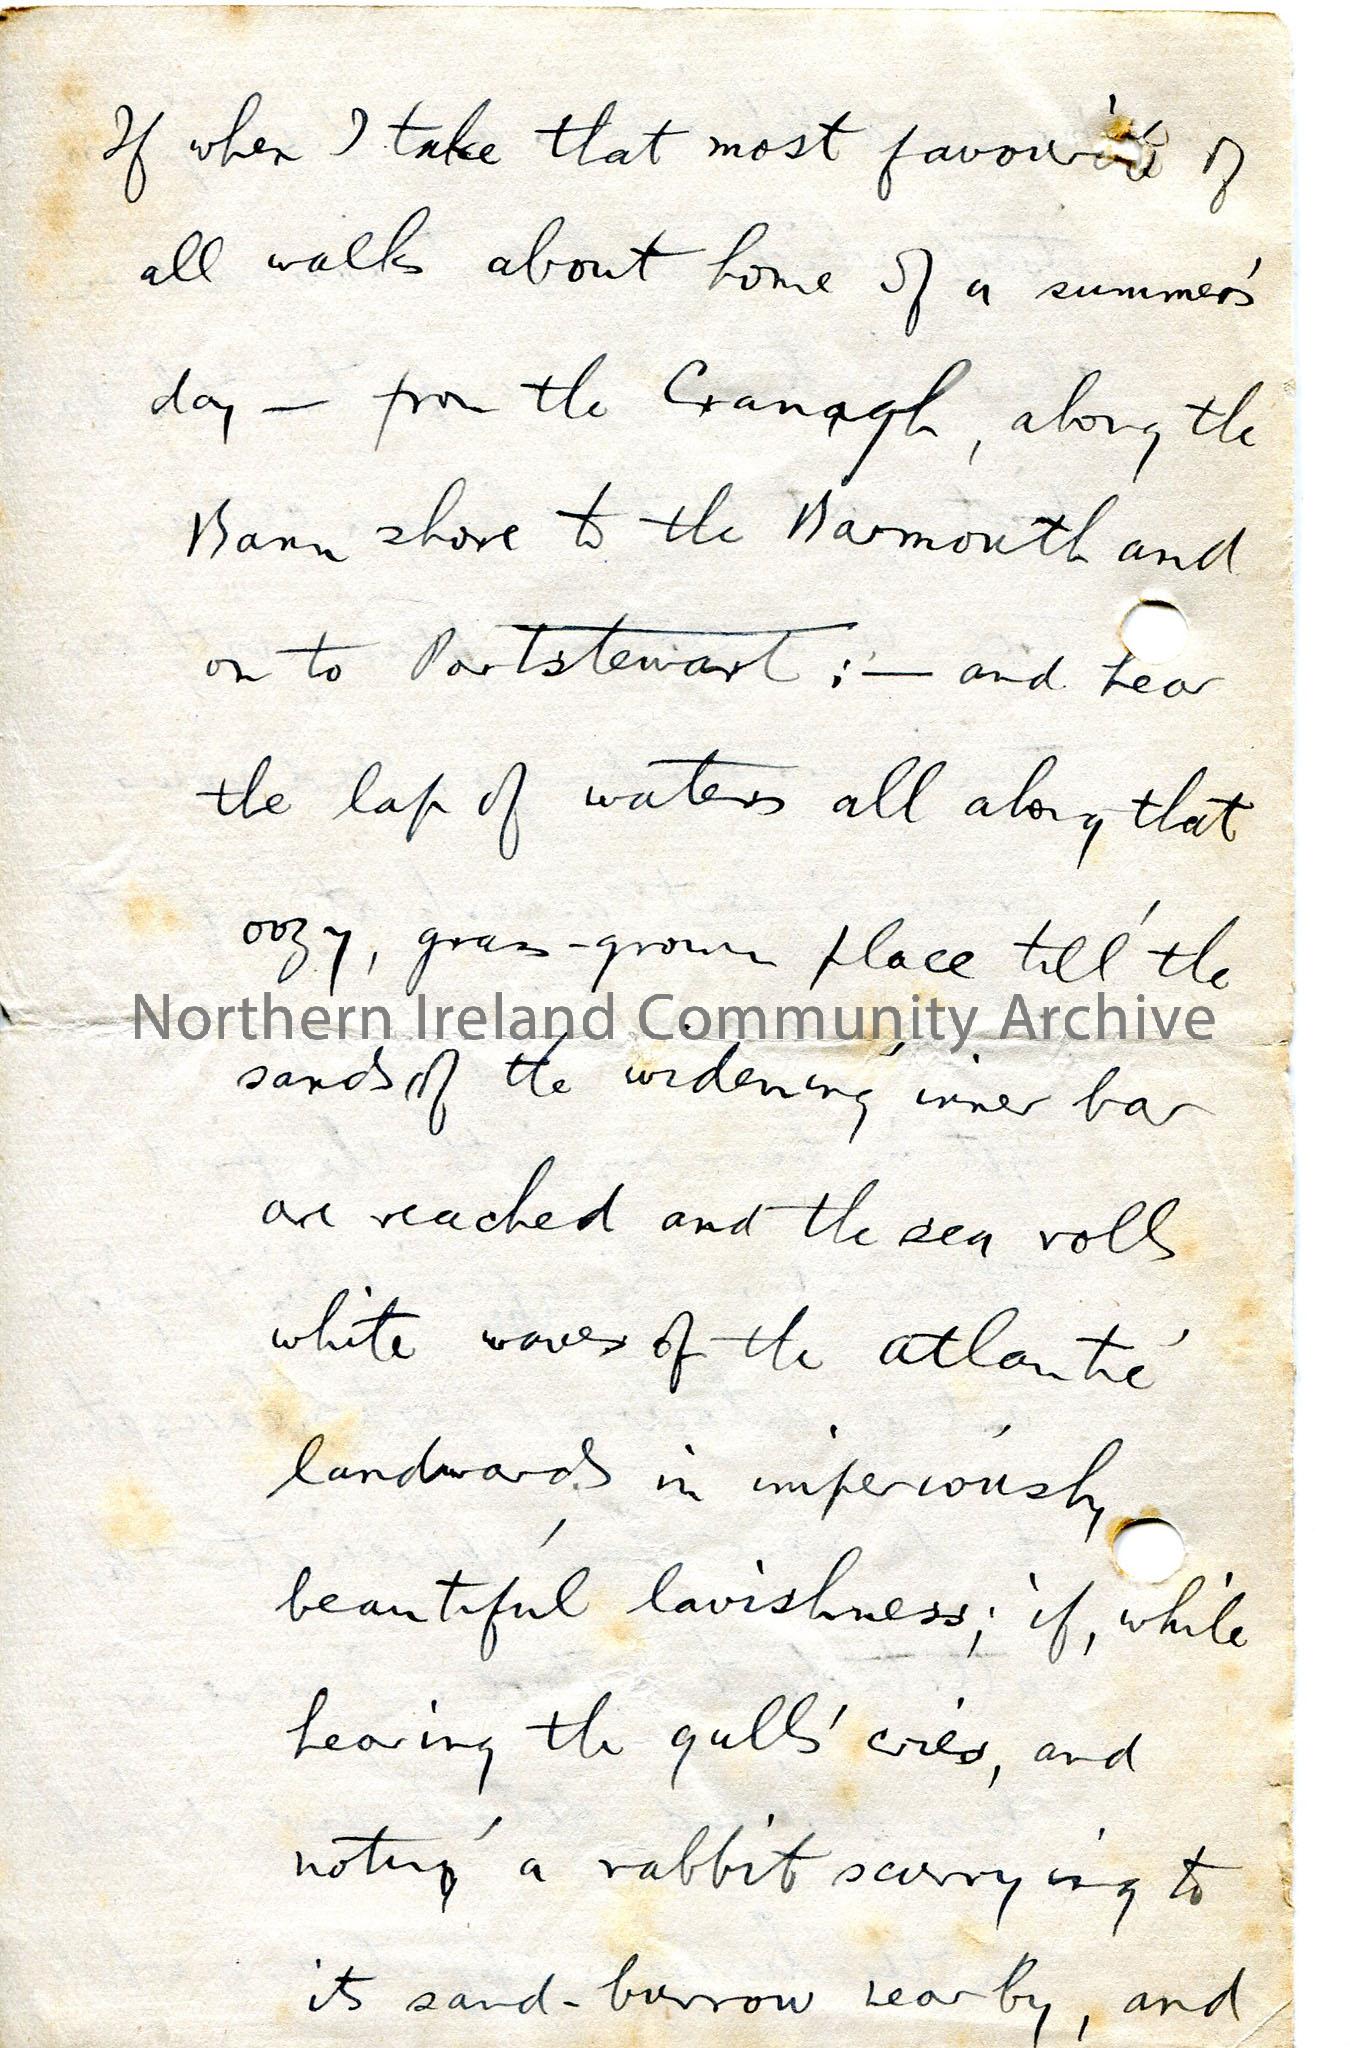 If when I take that most favourite of
all walks about home of a summer's
day — from the Cranagh, along the
Bann shore to the Barmouth and
on to Portstewart :— and hear
the lap of waters all along that
oozy, grass-grown place till the
Northern Ireland Community Archive
sands of the widening inner bar
are reached and the sea rolls
white waves of the atlantic
landwards in imperiously
beautiful lavishness; if, while
hearing the gulls' cries, and
noting a rabbit scurrying to
its sand-burrow nearby, and